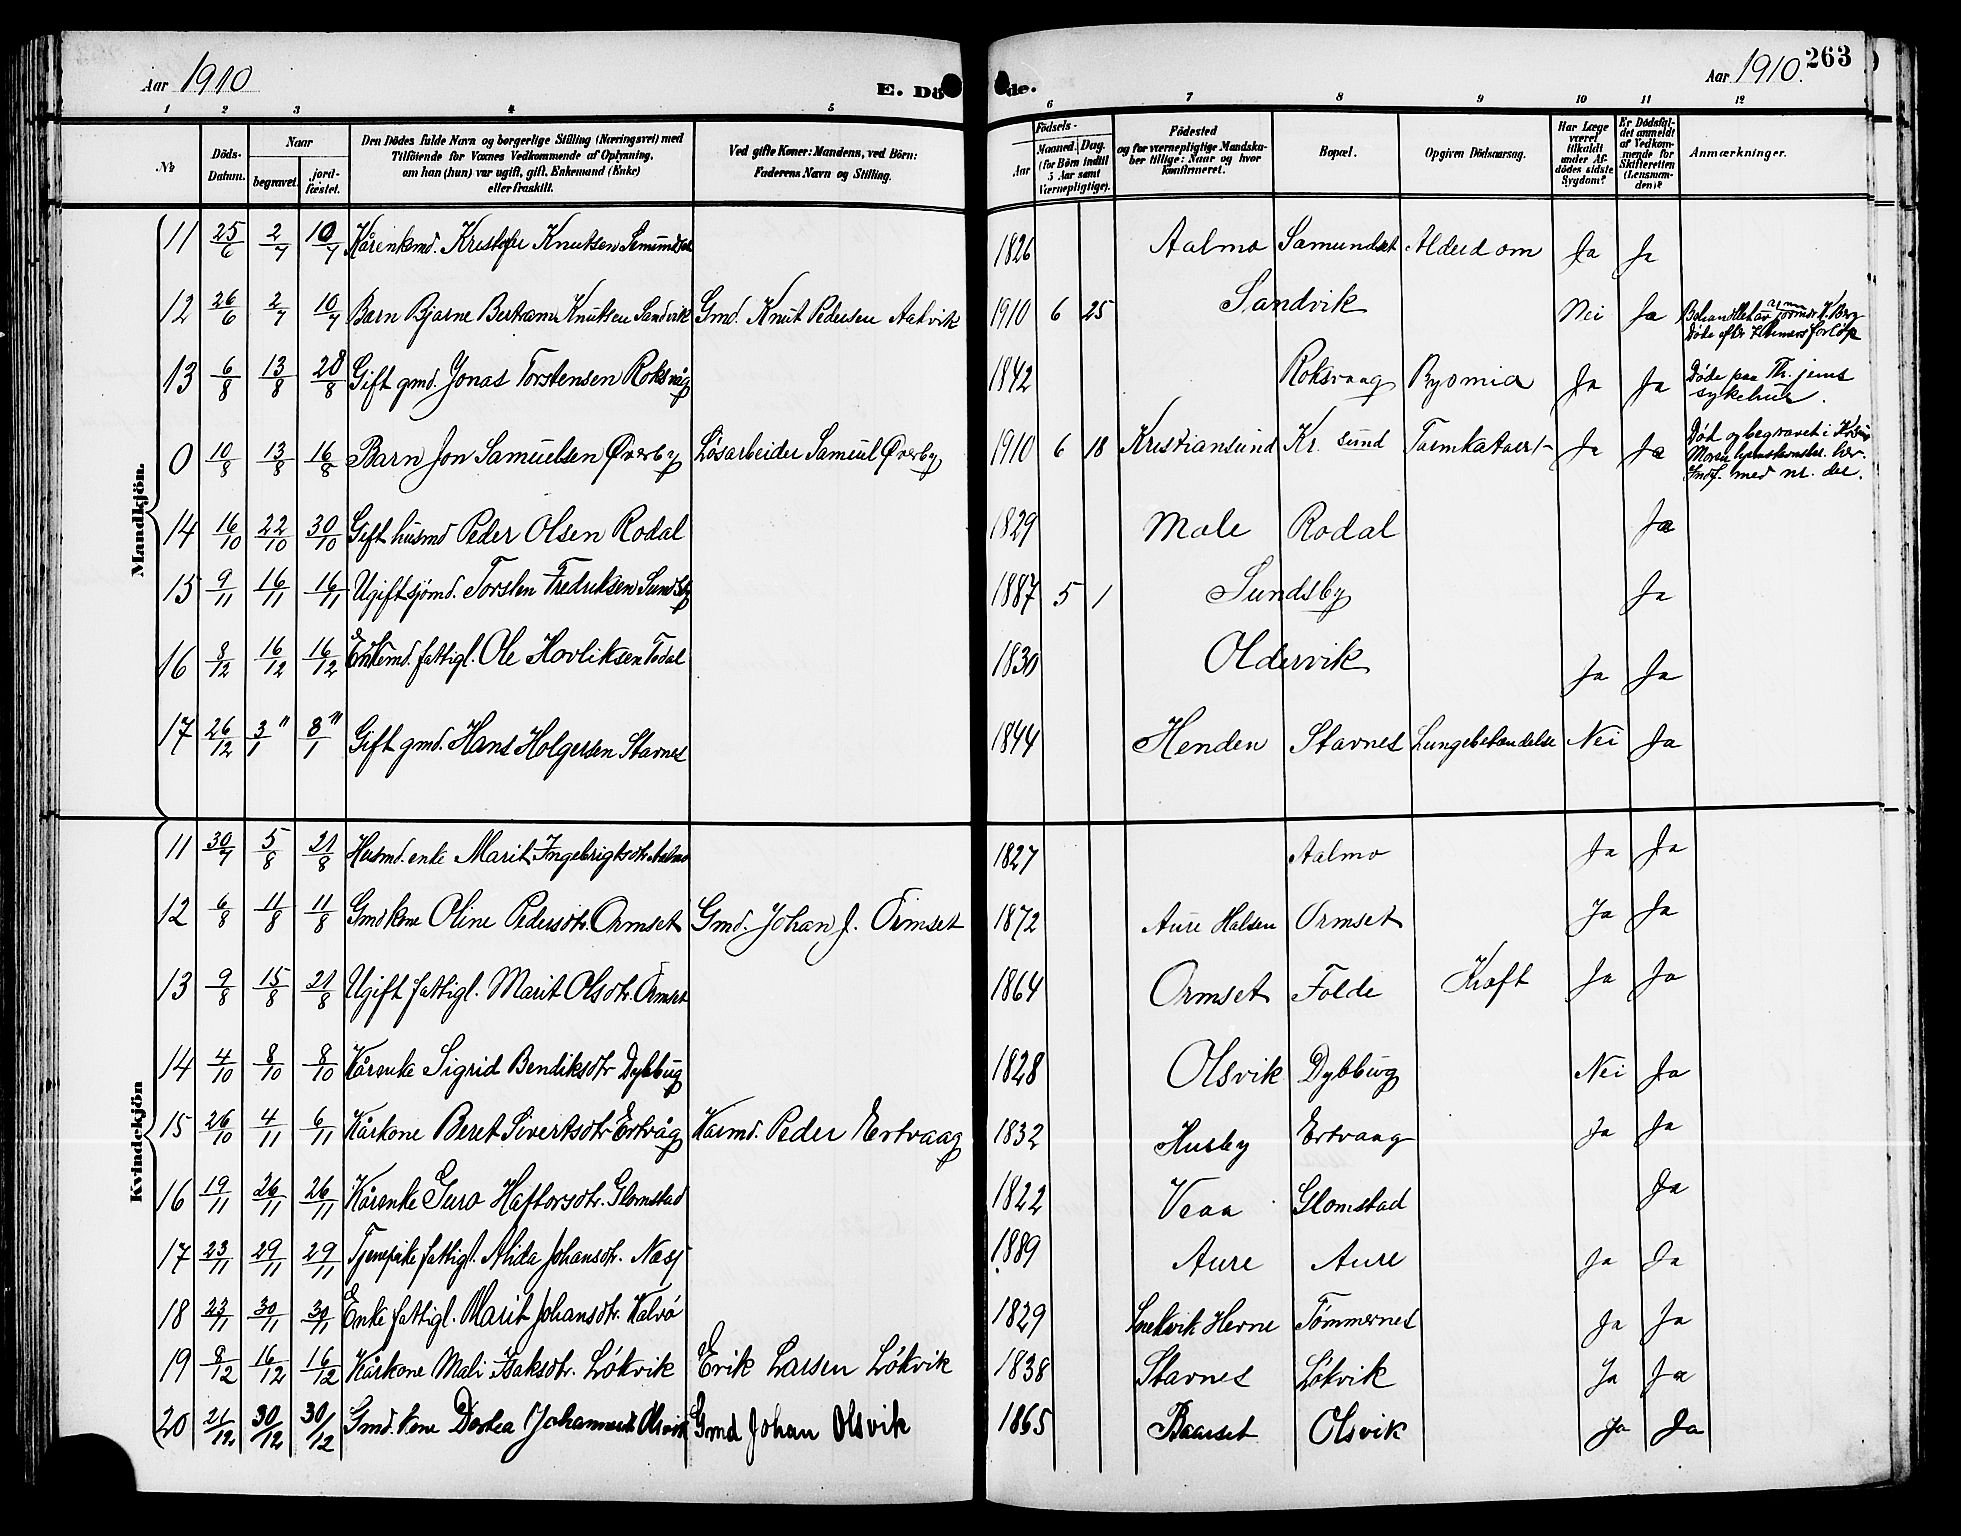 Aar 1910
E. Dö
de.
Aar 1910.
263
1 2 3 4 5 6 7 8 9 10 11 12
№
Döds-Datum.
Naar
begravet.
jord-fæstet.
Den Dödes fulde Navn og borgerlige Stilling (Næringsvei) med
Tilföiende for Voxnes Vedkommende af Oplysning,
om han (hun) var ugift, gift, Enkemand (Enke)
eller fraskilt.
Ved gifte Koner: Mandens, ved Börn:
Faderens Navn og Stilling.
Födsels-
Aar
Maaned. Dag.
(for Börn indtil
5 Aar samt
Værnepligtige).
Födested
og for værnepligtige Mandska-
ber tillige: Naar og hvor
konfirmeret.
Bopæl.
Opgiven Dödsaarsag.
Har Læge
været
tilkaldt
under Af-
dödes sidste
Sygdom?
Er Dödsfal-
det anmeldt
af Vedkom-
mende for
Skifteretten
(Lensman-
den)?
Anmærkninger.
Mandkjön.
11 25/6 2/7 10/7 Kårenkemd. Kristofer Knutsen Semundset 1826 Aalmo Samundset Alderdom Ja Ja
12 26/6 2/7 10/7 Barn Bjarne Bertramus Knutsen Sandvik Gmd. Knut Pedersen Aakvik 1910 6 25 Sandvik Nei Ja Behandlet av jormor K. Berg
Døde efter timers forløp
13 6/8 13/8 28/8 Gift gmd. Jonas Torstensen Roksvåg 1842 Roksvaag Pyomia Ja Ja Døde paa Th.jems
sykehus.
0 10/8 13/8 16/8 Barn Jon Samuelsen Øverby Løsarbeider Samuel Øverby 1910 6 18 Kristiansund Kr. sund Tarmkatarr Ja Ja Død og begravet i Kr.sund
Moren hjemstemstet her.
Indf. med nr. der.
14 16/10 22/10 30/10 Gift husmd Peder Olsen Rodal 1829 Mole Rodal Ja
15 9/11 16/11 16/11 Ugift sjømd. Torsten Fredriksen Sundsby 1887 5 1 Sundsby Ja
16 8/12 16/12 16/12 Enkemd. fattigl. Ole Hovliksen Todal 1830 Oldervik Ja Ja
17 26/12 3/1 11 8/1 11 Gift gmd. Hans Holgersen Stavnes 1844 Henden Stavnes Lungebetændelse Nei Ja
Kvindekjön
11 30/7 5/8 21/8 Husmd. enke Marit Ingebrigtsdtr. Aalmo 1827 Aalmo Ja Ja
12 6/8 11/8 11/8 Gmdkone Oline Pedersdtr. Ormset Gmd. Johan J. Ormset 1872 Aure Halsen Ormset Ja Ja
13 9/8 15/8 21/8 Ugift fattigl. Marit Olsdtr. Ormset 1864 Ormset Folde Kræft Ja Ja
14 4/10 8/10 8/10 Kårenke Sigrid Bendiksdtr Dybbug 1828 Olsvik Dybbug Nei Ja
15 26/10 4/11 6/11 Kårkone Beret Sivertsdtr Ertvåg Karmd. Peder Ertvaag 1832 Husby Ertvaag Ja Ja
16 19/11 26/11 26/11 Kårenke Guro Haftorsdtr. Glomstad 1822 Veaa Glomstad Ja
17 23/11 29/11 29/11 Tjenepike fattigl. Alida Johansdtr. Nasj 1889 Aure Aure Ja Ja
18 23/11 30/11 30/11 Enke fattigl. Marit Johansdtr. Kalvø 1829 Snekvik Herne Tømmernes Ja Ja
19 8/12 16/12 16/12 Kårkone Mali Isaksdtr. Løkvik Erik Larsen Løkvik 1838 Stavnes Løkvik Ja Ja
20 21/12 30/12 30/12 Gmd. kone Dortea Johannesd. Olsvik Gmd Johan Olsvik 1865 Baarset Olsvik Ja Ja